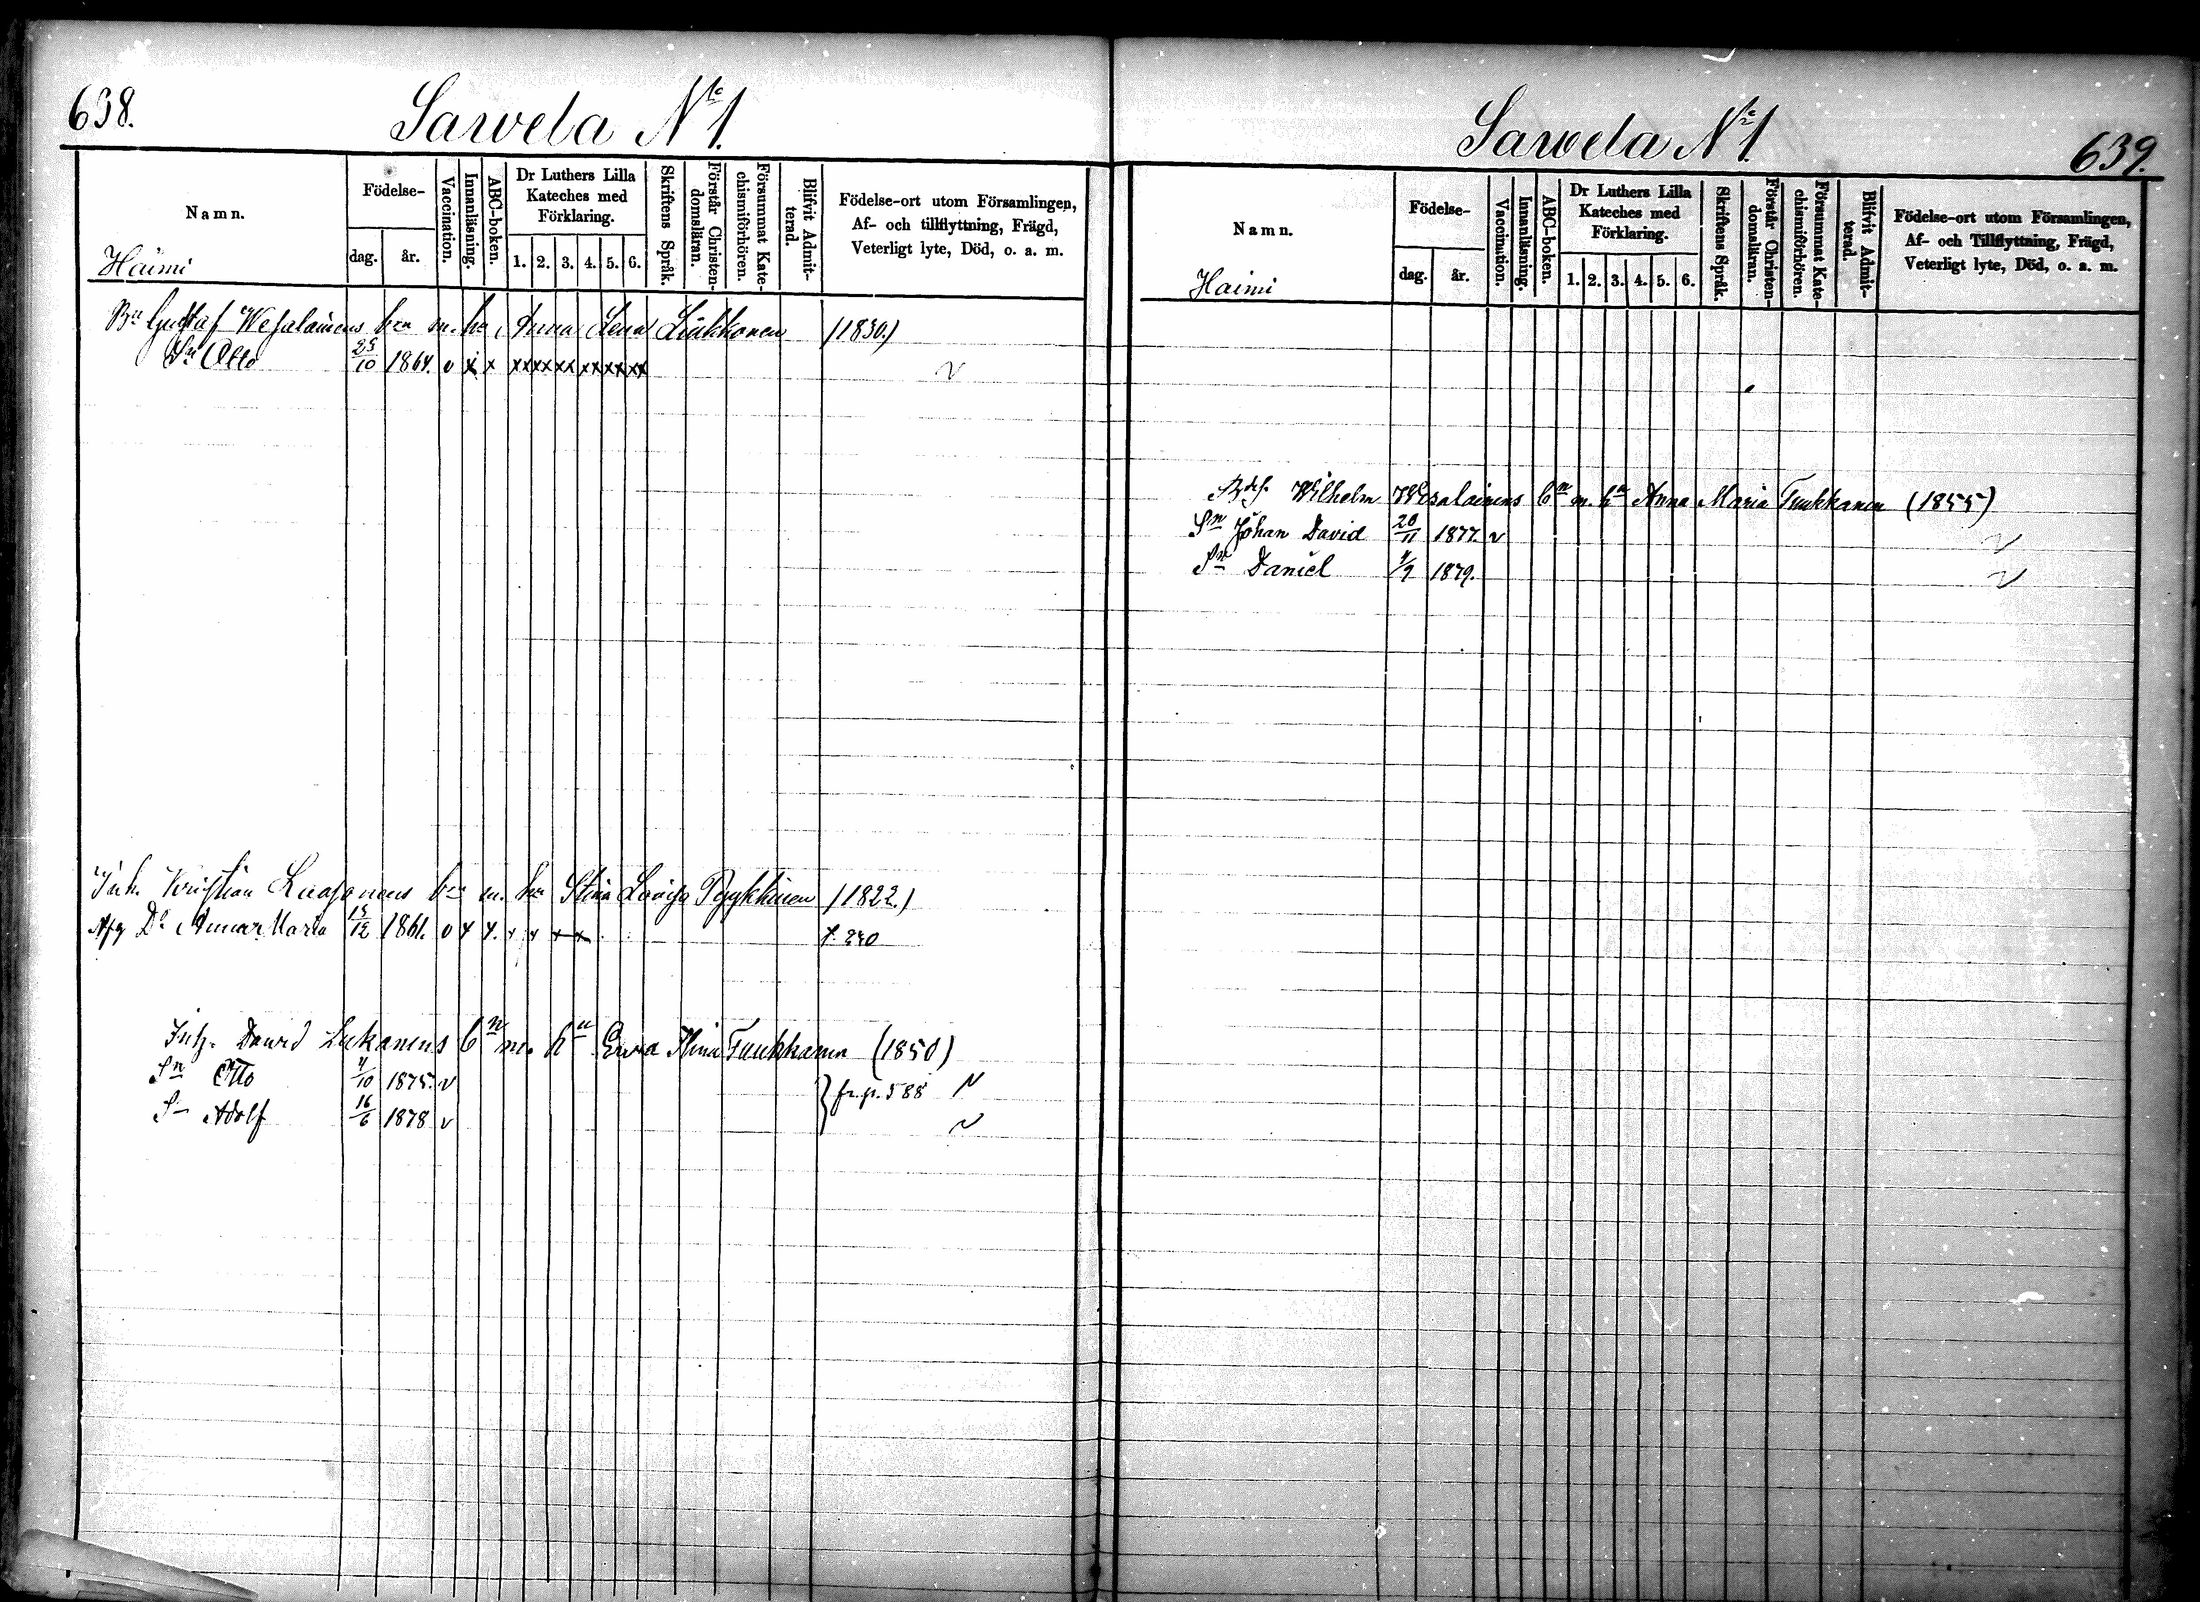 638.
Sawela No 1.
Namn.
Födelse-
dag.
år.
Vaccination.
Innanläsning.
ABC-boken.
Dr Luthers Lilla
Kateches med
Förklaring.
1. 2. 3. 4. 5. 6.
Skriftens Språk.
Förstår Christen-
domsläran.
Försummat Kate-
chismiförhören.
Blifvit Admit-
terad.
Födelse-ort utom Församlingen,
Af- och tillflyttning, Frägd,
Veterligt lyte, Död, o. a. m.
Haimi
Bn Gustaf Wesalainens bn m. hu Anna Lena Liukkonen (1830.)
Sn Otto 25/10 1864. v x x xx xx xx xx xx xx
Inh. Kristian Laasonens bn m. hu Stina Lovisa Pyykkinen (1822.)
Dr Anna Maria 15/12 1861. v x x. x x x x f. 240
Inh. David Lukanens bn m. hu Ewa Stina Tuukkanen (1850)
Sn Otto 4/10 1875. v } fr. p. 588
Sn Adolf 16/6 1878 v
Sawela No 1.
639.
Namn.
Födelse-
dag.
år.
Vaccination.
Innanläsning.
ABC-boken.
Dr Luthers Lilla
Kateches med
Förklaring.
1. 2. 3. 4. 5. 6.
Skriftens Språk.
Förstår Christen-
domsläran.
Försummat Kate-
chismiförhören.
Blifvit Admit-
terad.
Födelse-ort utom Församlingen,
Af- och Tillflyttning, Frägd,
Veterligt lyte, Död, o. a. m.
Haimi
Wilhelm Wesalainens bn m. hu Anna Maria Tuukkanen (1855)
Sn Johan David 20/11 1877. v
Sn Daniel 4/9 1879.